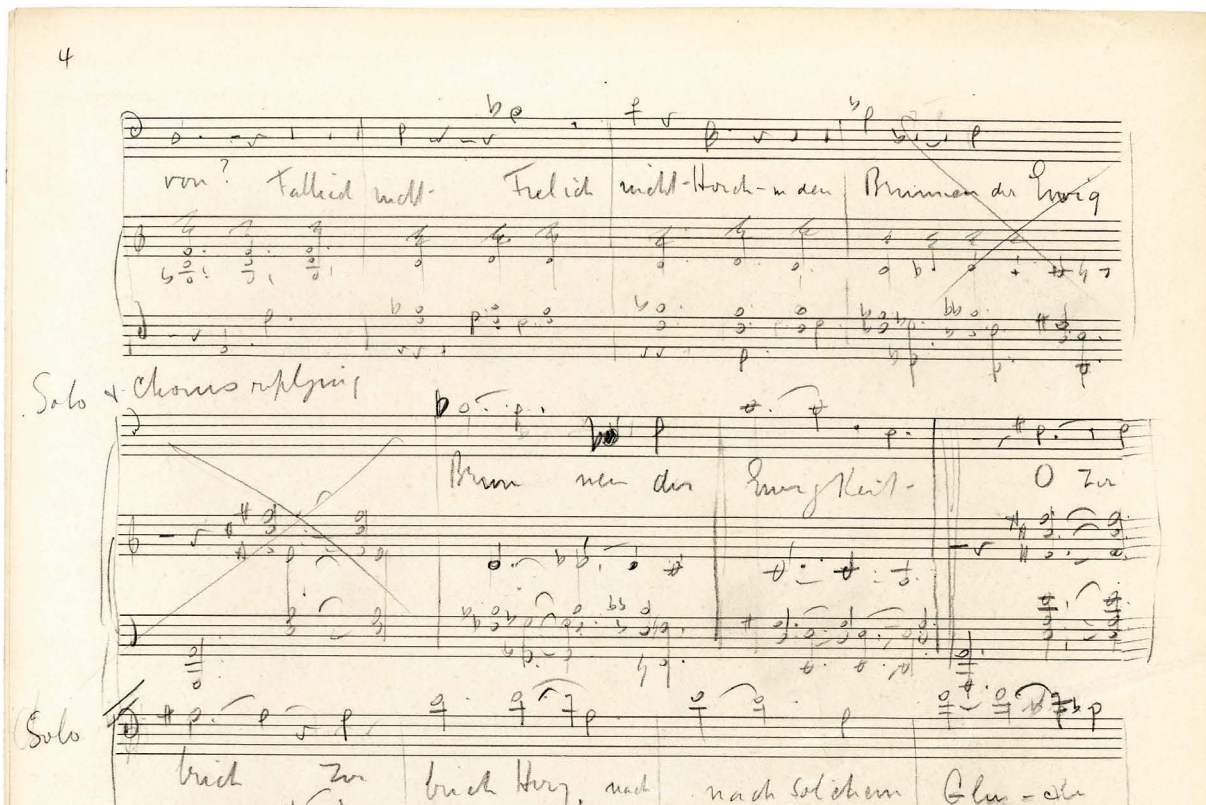 4
von? Fall ich nicht - Fiel ich nicht - Horch - in den Brunnen der Ewig
Solo + Chorus replying
Brun nen der Ewigkeit -
O Zer
Solo
brich Zer brich Herz, nach nach solchem Glu - cke